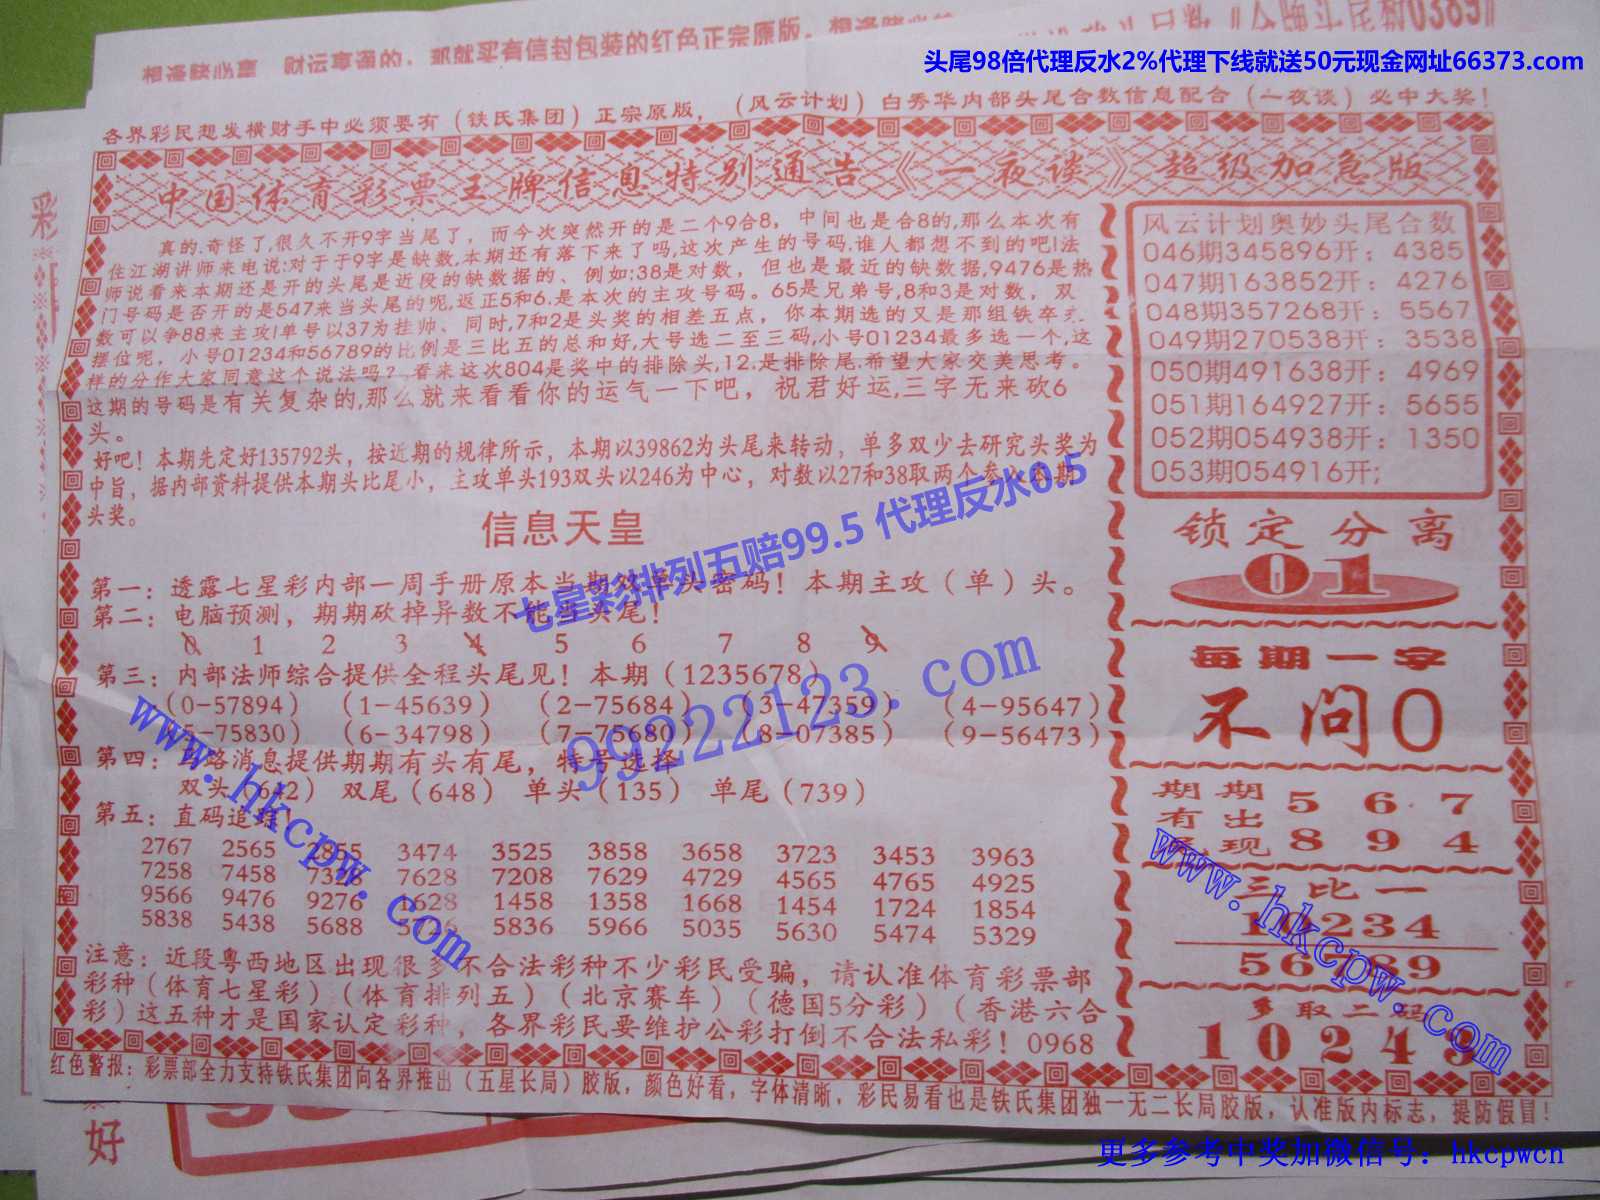 头尾98倍代理反水2%代理下线就送50元现金网址66373.com
各界彩民想发横财手中必须要有（铁氏集团）正宗原版，（风云计划）白秀华内部头尾合数信息配合（一夜谈）必中大奖！
中国体育彩票王牌信息特别通告《一夜谈》超级加急版
真的.奇怪了,很久不开9字当尾了，而今次突然开的是二个9合8，中间也是合8的,那么本次有
住江湖讲师来电说:对于于9字是缺数,本期还有落下来了吗,这次产生的号码.谁人都想不到的吧!法
师说看来本期还是开的头尾是近段的缺数据的、例如:38是对数，但也是最近的缺数据,9476是热
门号码是否开的是547来当头尾的呢,返正5和6.是本次的主攻号码。65是兄弟号,8和3是对数，双
数可以争88来主攻!单号以37为挂帅、同时,7和2是头奖的相差五点，你本期选的又是那组铁卒
摆位呢，小号01234和56789的比例是三比五的总和好,大号选二至三码,小号01234最多选一个,这
样的分作大家同意这个说法吗？看来这次804是奖中的排除头,12.是排除尾.希望大家交美思考。
这期的号码是有关复杂的,那么就来看看你的运气一下吧，祝君好运,三字无来砍6
头。
好吧！本期先定好135792头，按近期的规律所示，本期以39862为头尾来转动，单多双少去研究头奖为
中旨，据内部资料提供本期头比尾小，主攻单头193双头以246为中心，对数以27和38取两个参入本期
头奖。
信息天皇
第一：透露七星彩内部一周手册原本当期双单头密码！本期主攻（单）头。
第二：电脑预测，期期砍掉异数不能当头尾！
0 1 2 3 4 5 6 7 8 9
第三：内部法师综合提供全程头尾见！本期（1235678）
（0-57894）（1-45639）（2-75684）（3-47359）（4-95647）
（5-75830）（6-34798）（7-75680）（8-07385）（9-56473）
第四：路消息提供期期有头有尾，特号选择
双头（642） 双尾（648） 单头（135） 单尾（739）
第五：直码追踪
2767 2565 2855 3474 3525 3858 3658 3723 3453 3963
7258 7458 7328 7628 7208 7629 4729 4565 4765 4925
9566 9476 9276 1628 1458 1358 1668 1454 1724 1854
5838 5438 5688 5736 5836 5966 5035 5630 5474 5329
注意：近段粤西地区出现很多不合法彩种不少彩民受骗，请认准体育彩票部
彩种（体育七星彩）（体育排列五）（北京赛车）（德国5分彩）（香港六合
彩）这五种才是国家认定彩种，各界彩民要维护公彩打倒不合法私彩！0968
红色警报：彩票部全力支持铁氏集团向各界推出（五星长局）胶版，颜色好看，字体清晰，彩民易看也是铁氏集团独一无二长局胶版，认准版内标志，提防假冒！
风云计划奥妙头尾合数
046期345896开：4385
047期163852开：4276
048期357268开：5567
049期270538开：3538
050期491638开：4969
051期164927开：5655
052期054938开：1350
053期054916开;
锁定分离
01
每期一字
不问0
期期 5 6 7
有出 8 9 4
现
三比一
10234
56789
多取二码
10249
七星彩排列五赔99.5 代理反水0.5
99222123.com
www.hkcpw.com
www.hkcpw.com
更多参考中奖加微信号：hkcpwcn
彩
好